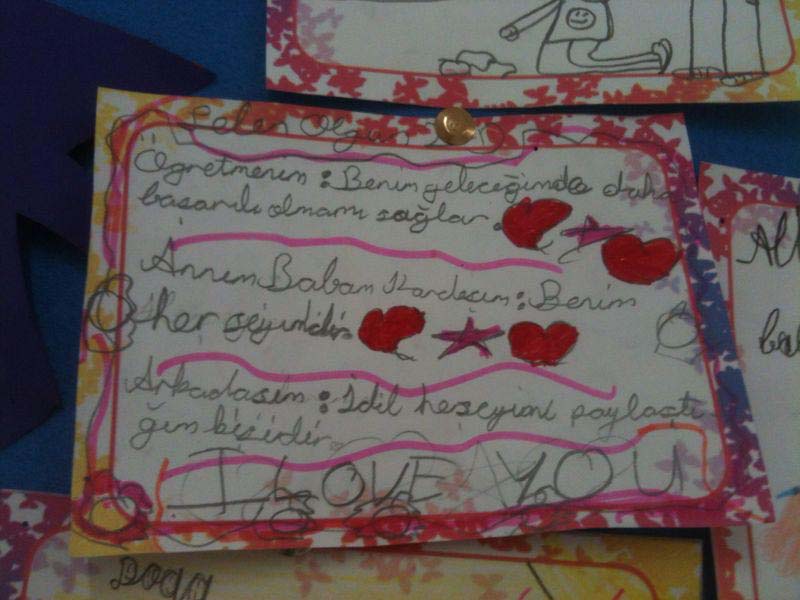 Selen Olgun
Öğretmenim : Benim geleceğimde daha
başarılı olmamı sağlar.
Annem Babam Kardeşim : Benim
her şeyimdir
Arkadaşım : İdil herşeyimi paylaştı
ğım kişidir.
I LOVE YOU
All
Doğa